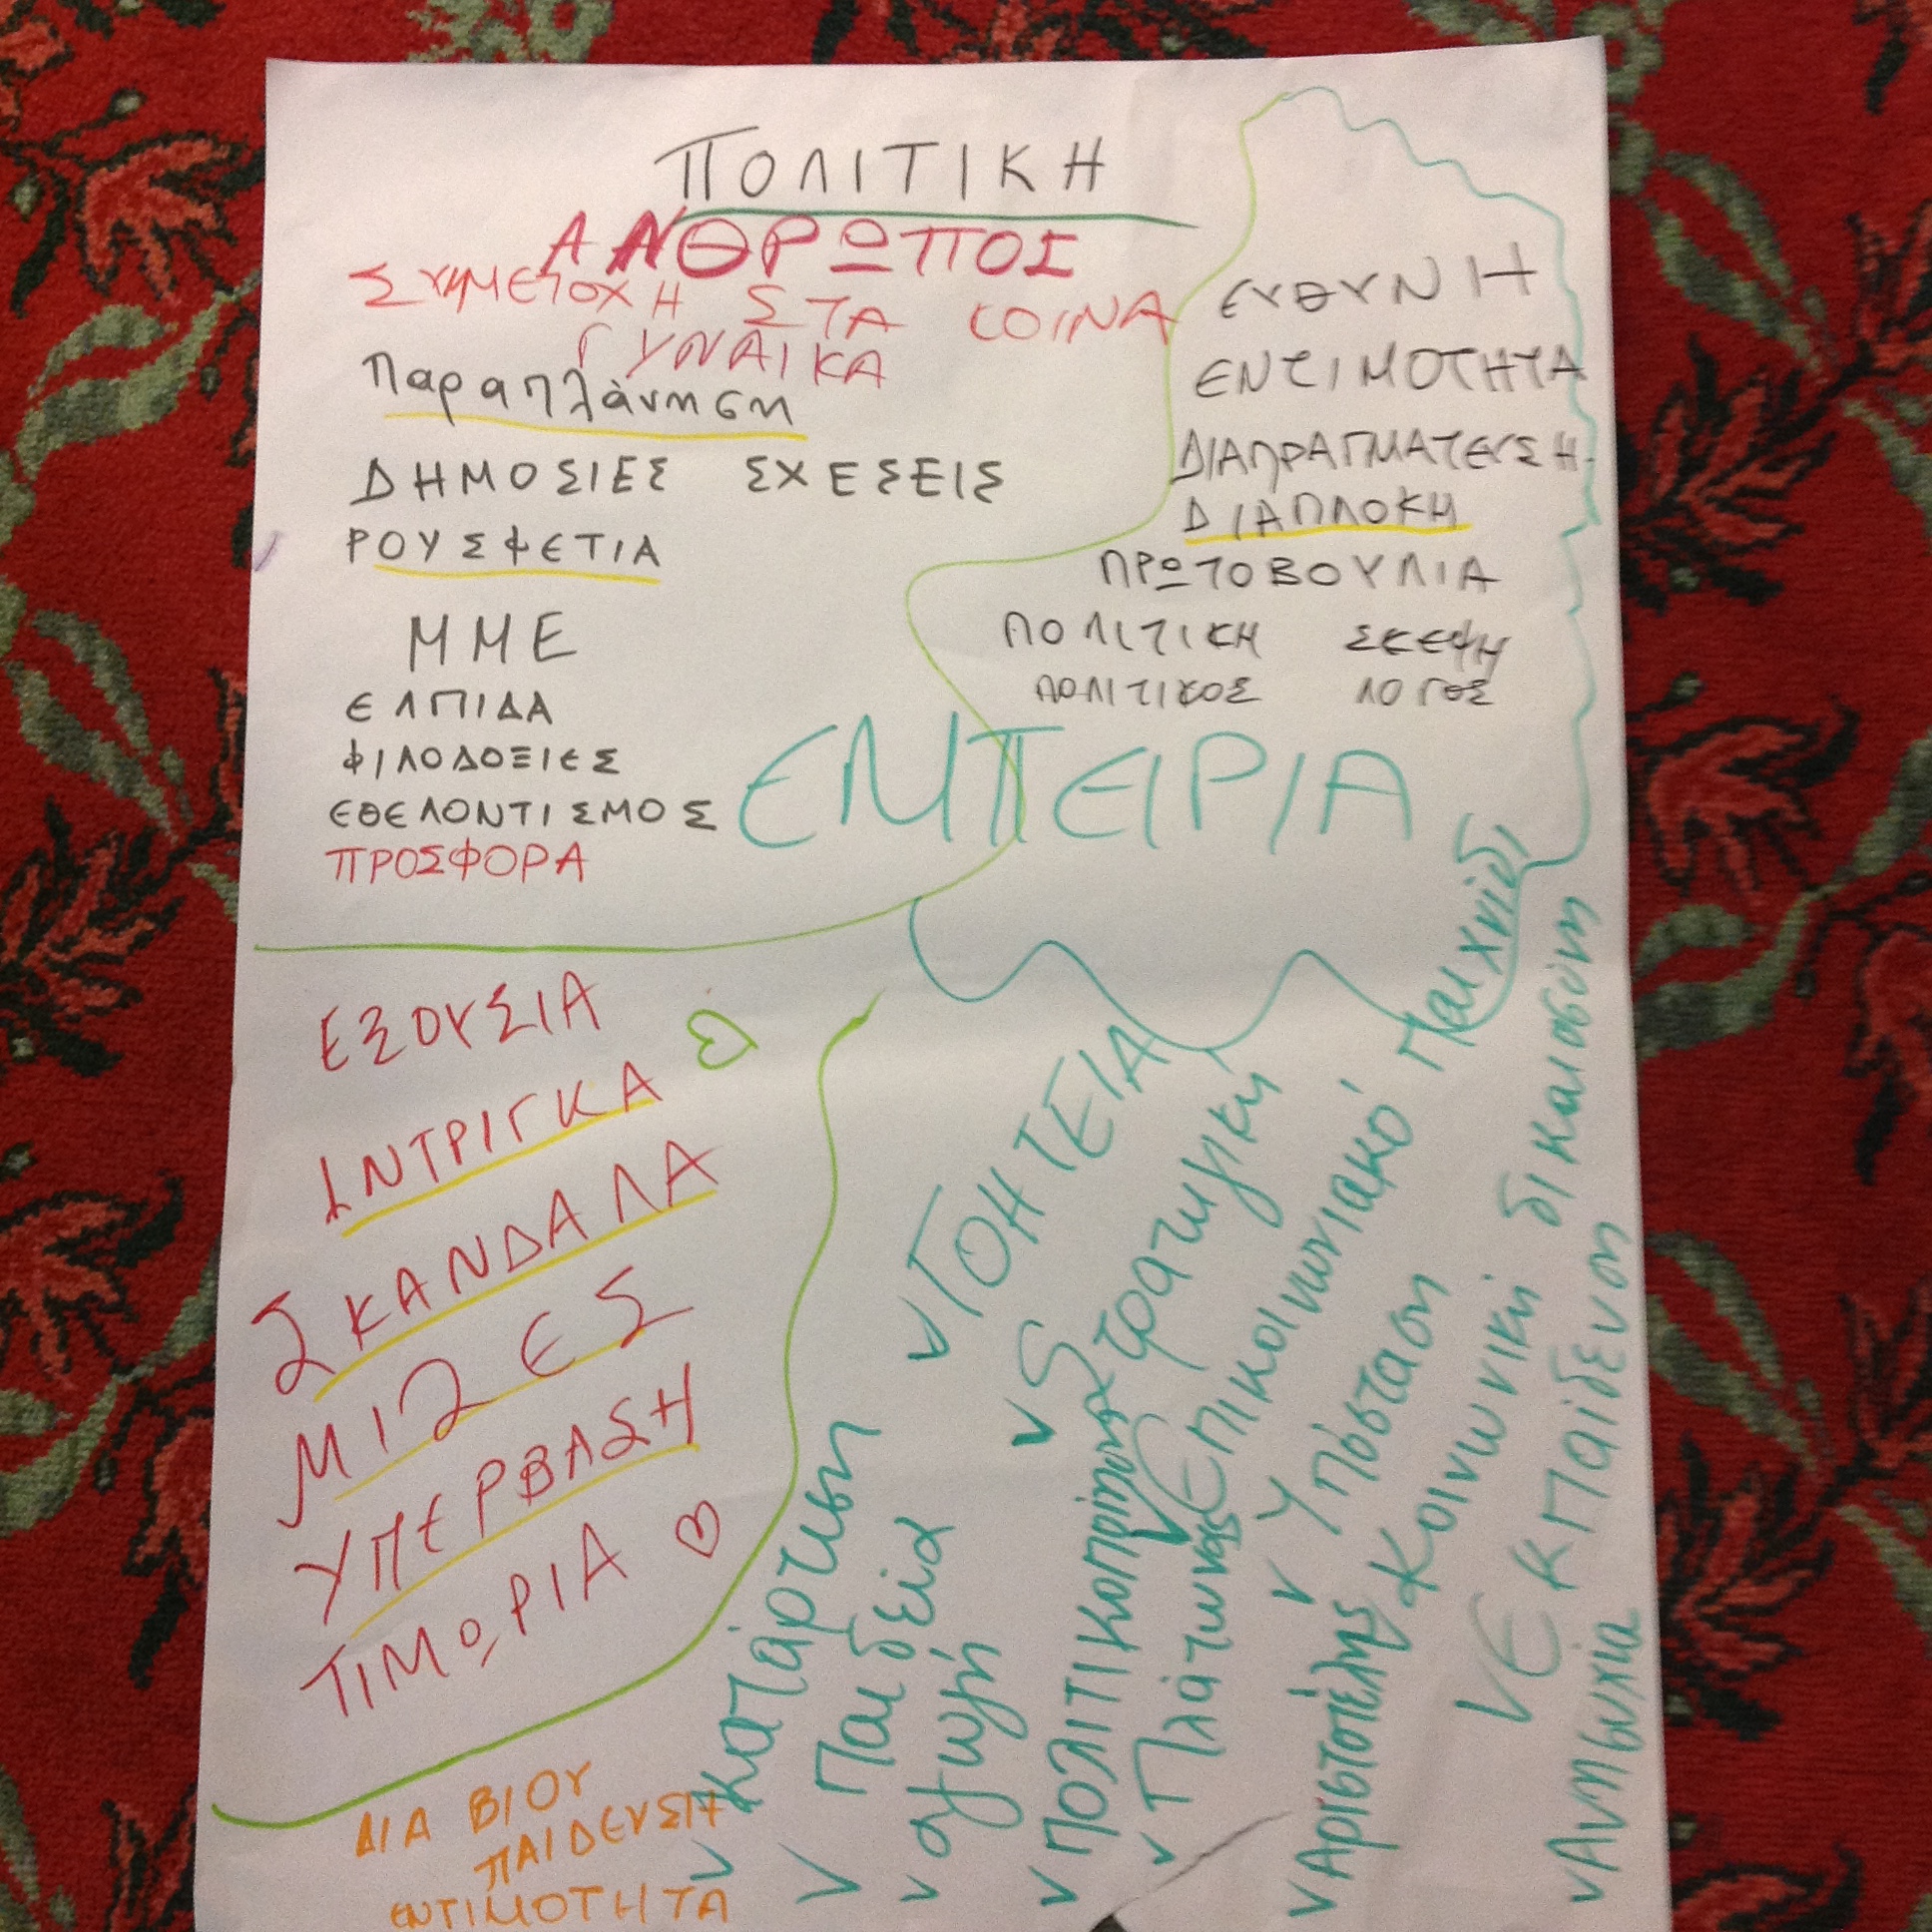 ΠΟΛΙΤΙΚΗ
ΑΝΘΡΩΠΟΣ
ΣΥΜΜΕΤΟΧΗ ΣΤΑ ΚΟΙΝΑ
ΓΥΝΑΙΚΑ
Παραπλάνηση
ΔΗΜΟΣΙΕΣ ΣΧΕΣΕΙΣ
ΡΟΥΣΦΕΤΙΑ
ΜΜΕ
ΕΛΠΙΔΑ
ΦΙΛΟΔΟΞΙΕΣ
ΕΘΕΛΟΝΤΙΣΜΟΣ
ΠΡΟΣΦΟΡΑ
ΕΥΘΥΝΗ
ΕΝΤΙΜΟΤΗΤΑ
ΔΙΑΠΡΑΓΜΑΤΕΥΣΗ
ΔΙΑΠΛΟΚΗ
ΠΡΩΤΟΒΟΥΛΙΑ
ΠΟΛΙΤΙΚΗ ΣΚΕΨΗ
ΠΟΛΙΤΙΚΟΣ ΛΟΓΟΣ
ΕΜΠΕΙΡΙΑ
ΕΞΟΥΣΙΑ
ΙΝΤΡΙΓΚΑ
ΣΚΑΝΔΑΛΑ
ΜΙΖΕΣ
ΥΠΕΡΒΑΣΗ
ΤΙΜΩΡΙΑ
ΔΙΑ ΒΙΟΥ
ΠΑΙΔΕΥΣΗ
ΕΝΤΙΜΟΤΗΤΑ
ΓΟΗΤΕΙΑ
Στρατηγική
Επικοινωνιακό Παιχνίδι
Υπόσταση
Κοινωνική δικαιοσύνη
Εκπαίδευση
κατάρτιση
Παιδεία
αγωγή
Πλάτωνας
Αριστοτέλης
Ανησυχία